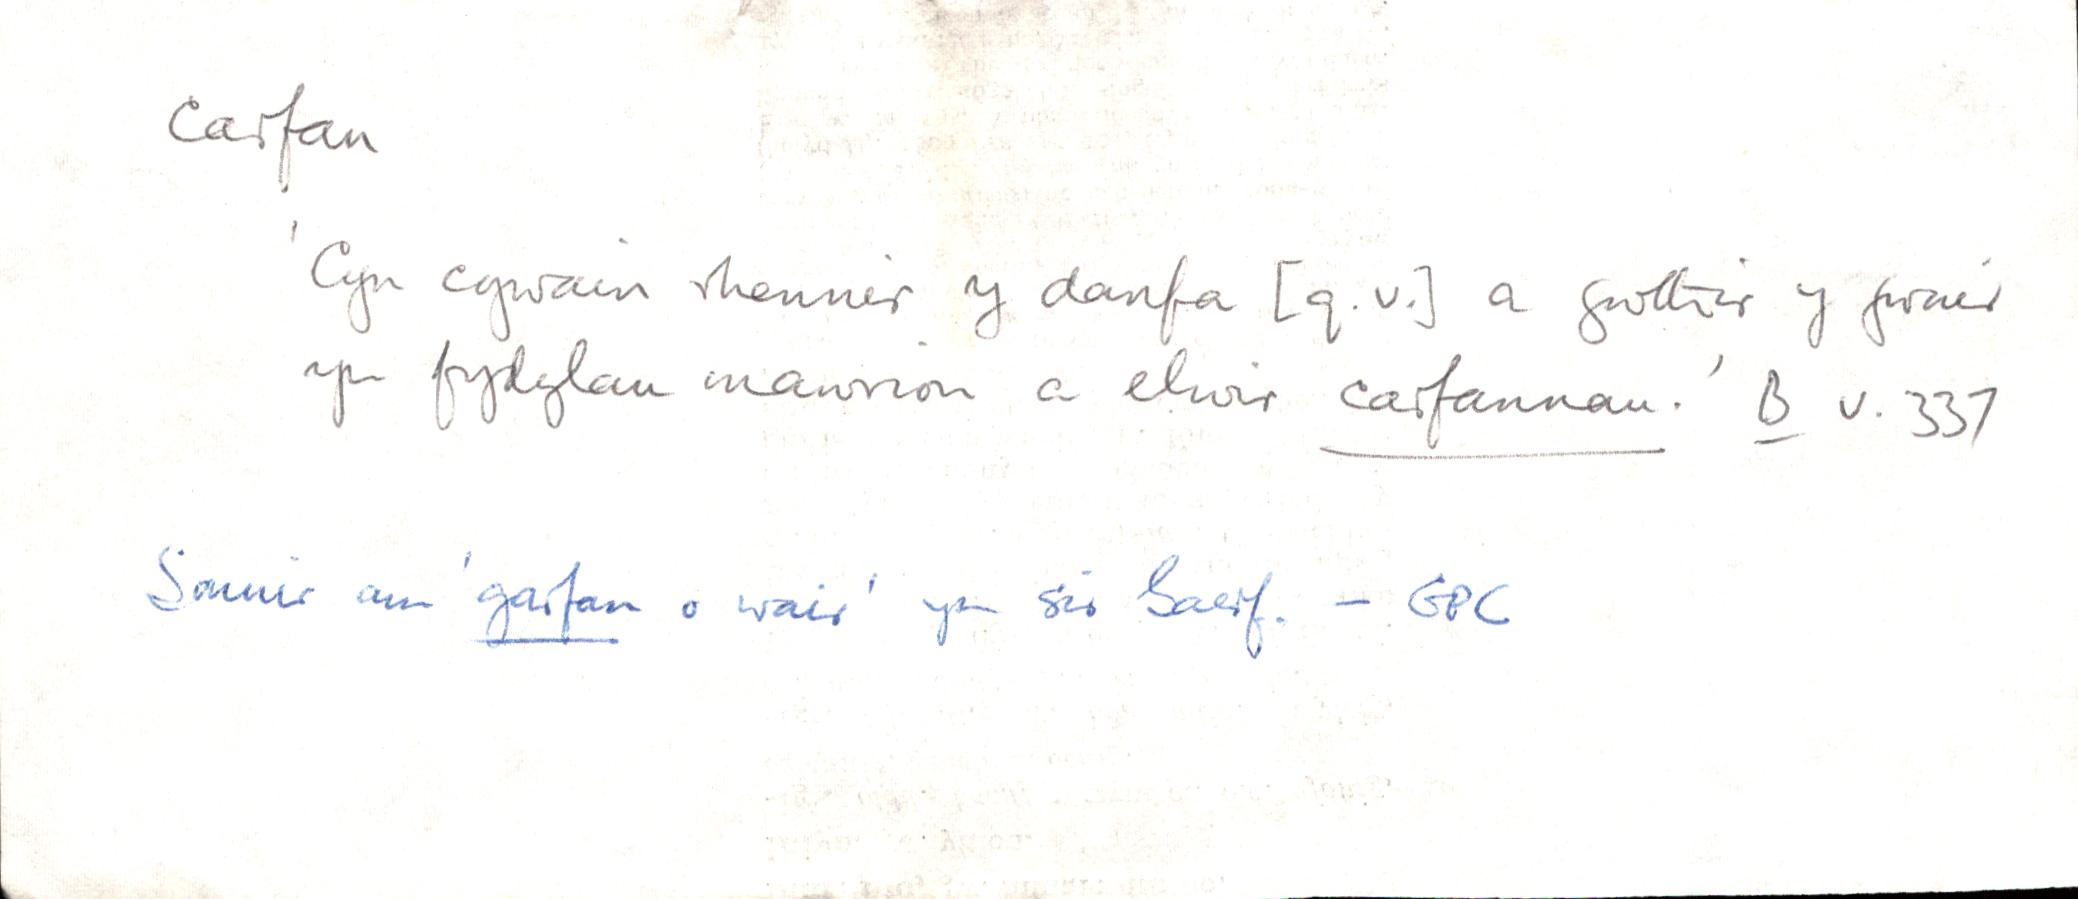 Carfan
'Cyn cywain rhennir y danfa [q.v.] a gwthir y gwair
yn fydylau mawrion a elwir carfannau.' B v. 337
Sonnir am 'garfan o wair' yn sir Gaerf. – GPC